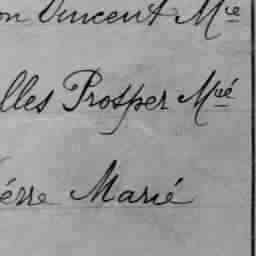 on Vincent Mié
lles Prosper Mié
érre Marié